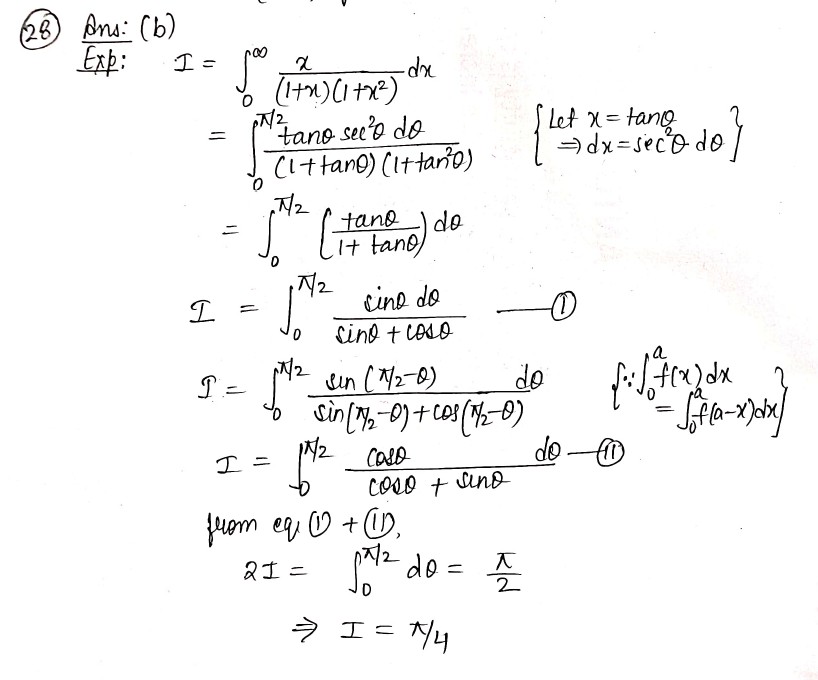 28 Ans: (b)
Exp: I = ∫₀^∞ x/((1+x)(1+x²)) dx
= ∫₀^{π/2} tanθ sec²θ dθ/((1+tanθ)(1+tan²θ)) {Let x = tanθ
⇒ dx = sec²θ dθ}
= ∫₀^{π/2} (tanθ/(1+tanθ)) dθ
I = ∫₀^{π/2} sinθ dθ/(sinθ + cosθ) — ①
I = ∫₀^{π/2} sin(π/2-θ)/(sin(π/2-θ)+cos(π/2-θ)) dθ {∵ ∫₀^a f(x)dx
= ∫₀^a f(a-x)dx}
I = ∫₀^{π/2} cosθ/(cosθ + sinθ) dθ — ⑪
from eq. ① + ⑪,
2I = ∫₀^{π/2} dθ = π/2
⇒ I = π/4